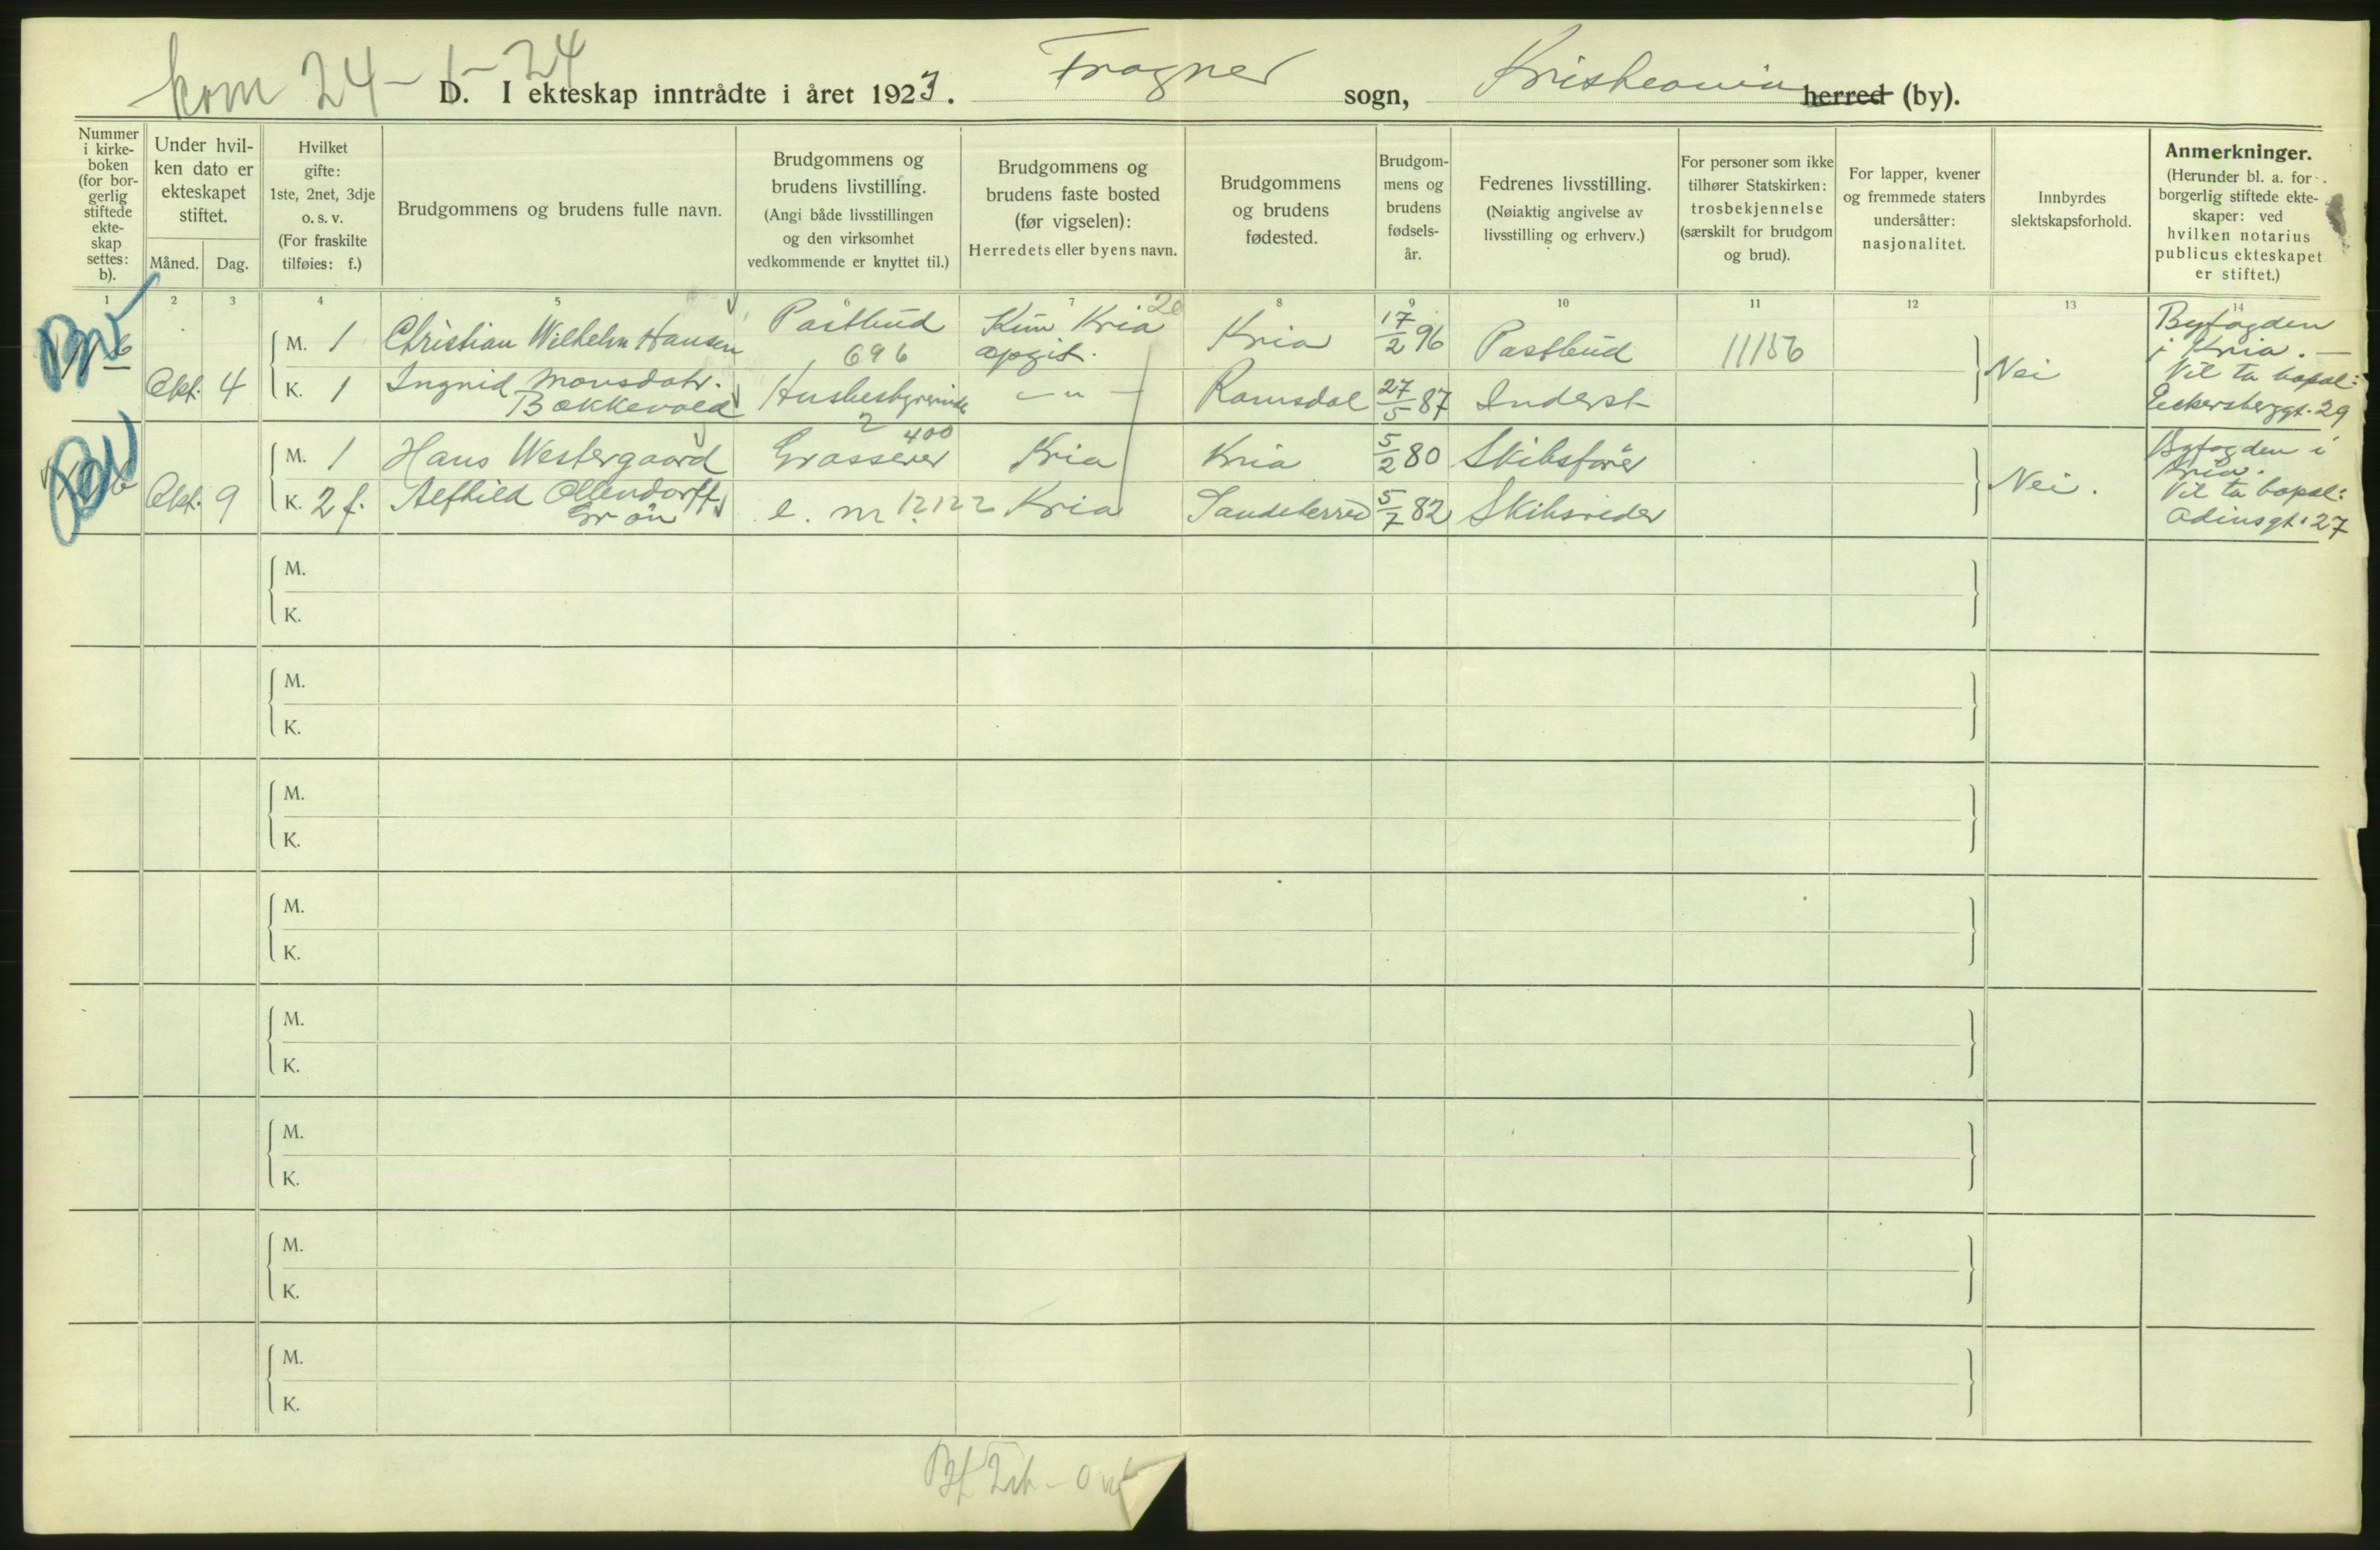 kom 24-1-24
D. I ekteskap inntrådte i året 1923. Frogner sogn, Kristiania herred (by).
Nummer
i kirke-
boken
(for bor-
gerlig
stiftede
ekte-
skap
settes:
b).
Under hvil-
ken dato er
ekteskapet
stiftet.
Måned. Dag.
Hvilket
gifte:
1ste, 2net, 3dje
o. s. v.
(For fraskilte
tilføies: f.)
Brudgommens og brudens fulle navn.
Brudgommens og
brudens livstilling.
(Angi både livsstillingen
og den virksomhet
vedkommende er knyttet til.)
Brudgommens og
brudens faste bosted
(før vigselen):
Herredets eller byens navn.
Brudgommens
og brudens
fødested.
Brudgom-
mens og
brudens
fødsels-
år.
Fedrenes livsstilling.
(Nøiaktig angivelse av
livsstilling og erhverv.)
For personer som ikke
tilhører Statskirken:
trosbekjennelse
(særskilt for brudgom
og brud).
For lapper, kvener
og fremmede staters
undersåtter:
nasjonalitet.
Innbyrdes
slektskapsforhold.
Anmerkninger.
(Herunder bl. a. for
borgerlig stiftede ekte-
skaper: ved
hvilken notarius
publicus ekteskapet
er stiftet.)
1 2 3 4 5 6 7 8 9 10 11 12 13 14
20
M. 1 Christian Wilhelm Hansen Postbud 696 Kun Kria opgit. Kria 17/2 96 Postbud 11156
Okt. 4 K. 1 Ingrid Monsdatr. Bakkevold Husbestyrerinde 2 — " — Romsdal 27/5 87 Inderst Nei
Byfogden
i Kria. —
Vil ta bopæl:
Eckersberggt. 29
M. 1 Hans Westergaard Grosserer 400 Kria Kria 5/2 80 Skibsfører
Okt. 9 K. 2 f. Alfhild Ollendorff Grøn e. m 12122 Kria Sandeherred 5/7 82 Skibsreder Nei.
Byfogden i
Kria.
Vil ta bopæl:
Odinsgt. 27
M.
K.
M.
K.
M.
K.
M.
K.
M.
K.
M.
K.
M.
K.
M.
K.